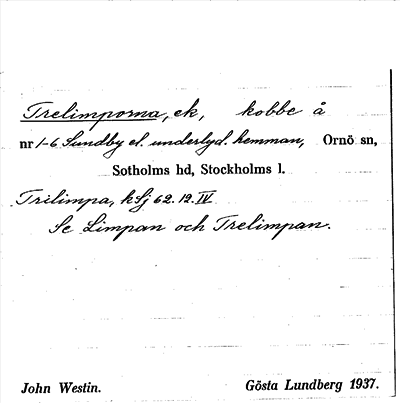 Trelimporna, ek, kobbe å
nr 1-6 Sundby el. underlyd. hemman, Ornö sn,
Sotholms hd, Stockholms l.
Trilimpa, hSj 62. 12. IV
Se Limpan och Trelimpan.
John Westin. Gösta Lundberg 1937.